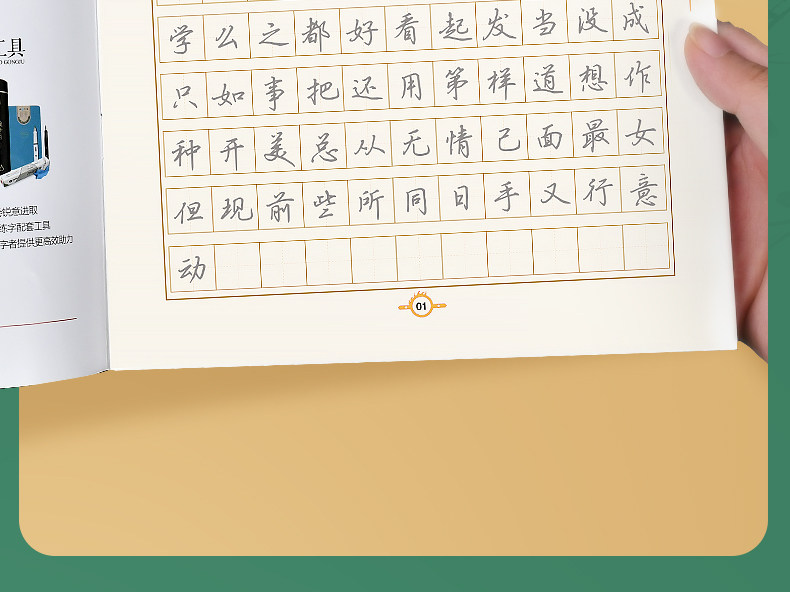 工具
锐意进取
练字配套工具
字者提供更高效助力
学么之都好看起发当没成
只如事把还用第样道想作
种开美总从无情己面最女
但现前些所同日手又行意
动
01